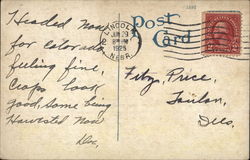 Post
Card
LINCOLN
JUN 29
1925
NEBR.
Headed Now
for Colorado
feeling fine,
Crops look
good, some being
Harvested Now
Doc,
Fitz, Price,
Toulon,
Ills.